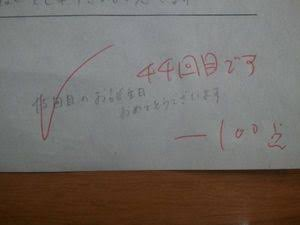 44回目です
回目のお誕生日
おめでとうございます
－100点